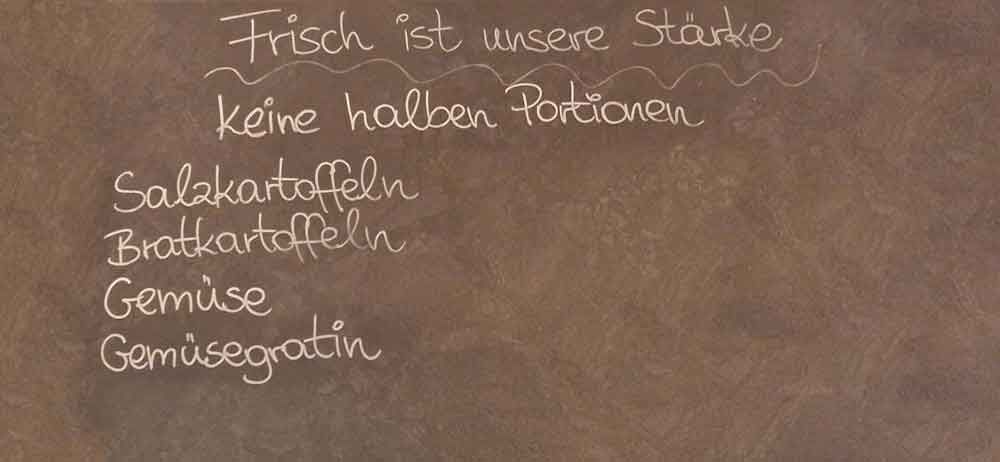 Frisch ist unsere Stärke
keine halben Portionen
Salzkartoffeln
Bratkartoffeln
Gemüse
Gemüsegratin